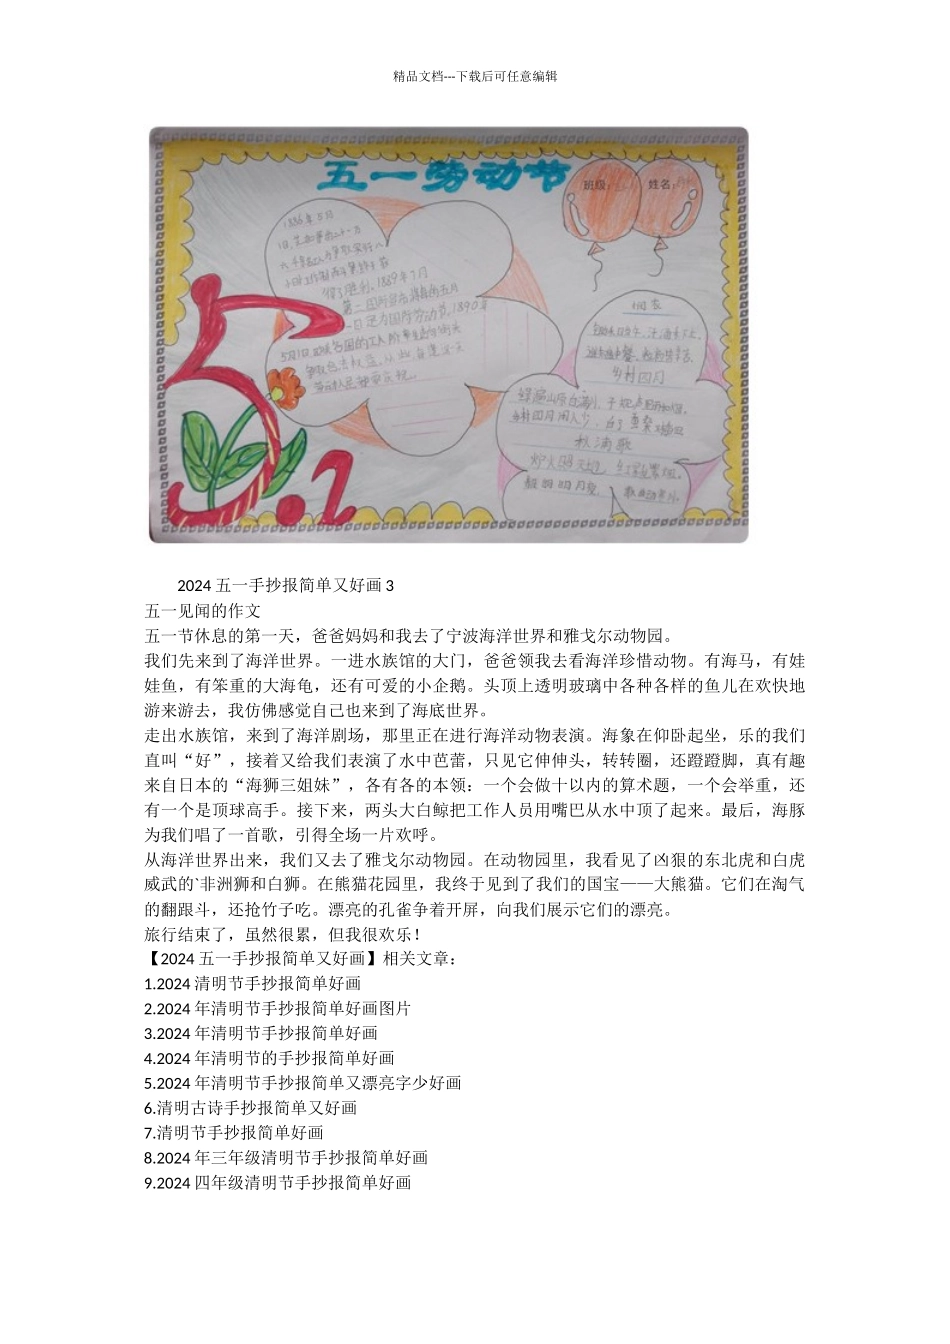 精品文档---下载后可任意编辑
五一劳动节
班级：
姓名：
1886年5月
得了胜利，1889年7月
悯农
乡村四月
秋浦歌
5.1
2024 五一手抄报简单又好画 3
五一见闻的作文
五一节休息的第一天，爸爸妈妈和我去了宁波海洋世界和雅戈尔动物园。
我们先来到了海洋世界。一进水族馆的大门，爸爸领我去看海洋珍惜动物。有海马，有娃
娃鱼，有笨重的大海龟，还有可爱的小企鹅。头顶上透明玻璃中各种各样的鱼儿在欢快地
游来游去，我仿佛感觉自己也来到了海底世界。
走出水族馆，来到了海洋剧场，那里正在进行海洋动物表演。海象在仰卧起坐，乐的我们
直叫“好”，接着又给我们表演了水中芭蕾，只见它伸伸头，转转圈，还蹬蹬脚，真有趣
来自日本的“海狮三姐妹”，各有各的本领：一个会做十以内的算术题，一个会举重，还
有一个是顶球高手。接下来，两头大白鲸把工作人员用嘴巴从水中顶了起来。最后，海豚
为我们唱了一首歌，引得全场一片欢呼。
从海洋世界出来，我们又去了雅戈尔动物园。在动物园里，我看见了凶狠的东北虎和白虎
威武的`非洲狮和白狮。在熊猫花园里，我终于见到了我们的国宝——大熊猫。它们在淘气
的翻跟斗，还抢竹子吃。漂亮的孔雀争着开屏，向我们展示它们的漂亮。
旅行结束了，虽然很累，但我很欢乐！
【2024 五一手抄报简单又好画】相关文章：
1.2024 清明节手抄报简单好画
2.2024 年清明节手抄报简单好画图片
3.2024 年清明节手抄报简单好画
4.2024 年清明节的手抄报简单好画
5.2024 年清明节手抄报简单又漂亮字少好画
6.清明古诗手抄报简单又好画
7.清明节手抄报简单好画
8.2024 年三年级清明节手抄报简单好画
9.2024 四年级清明节手抄报简单好画